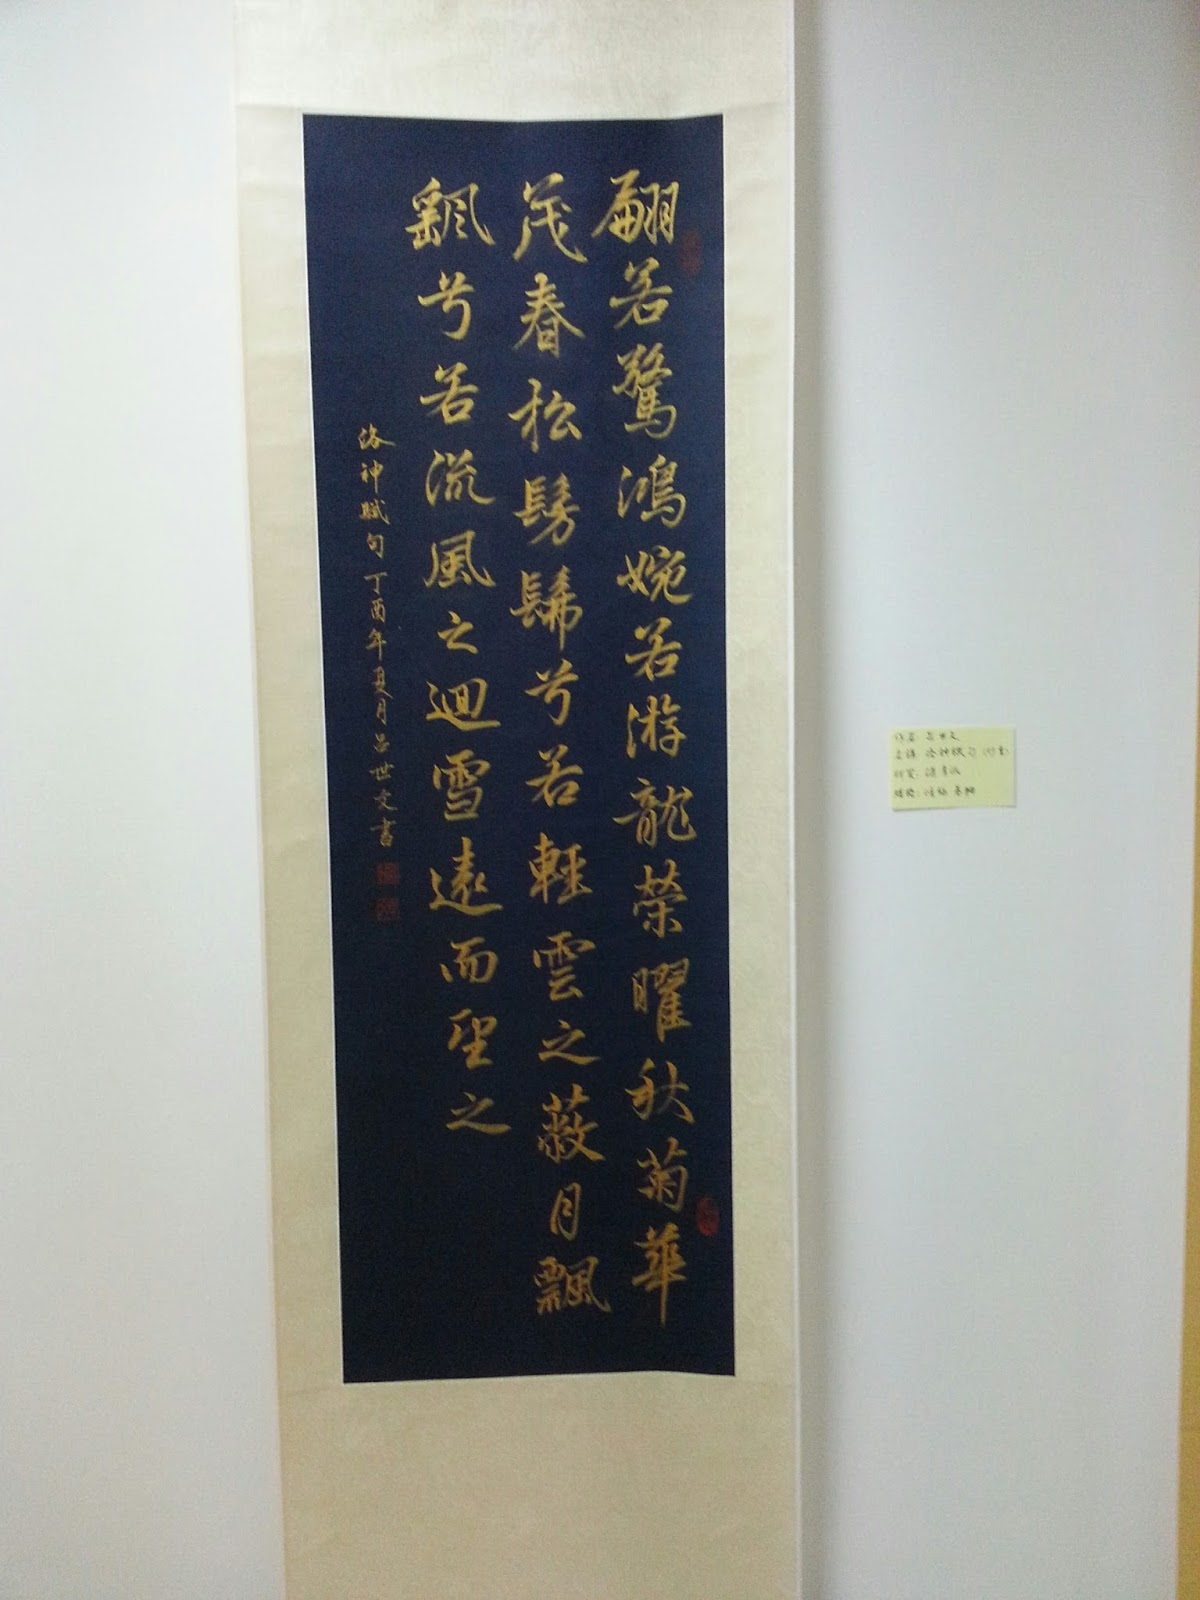 翩若驚鴻婉若游龍榮曜秋菊華
茂春松髣髴兮若輕雲之蔽月飄
颻兮若流風之迴雪遠而望之
洛神賦句丁酉年夏月呂世文書
名稱：洛神賦句